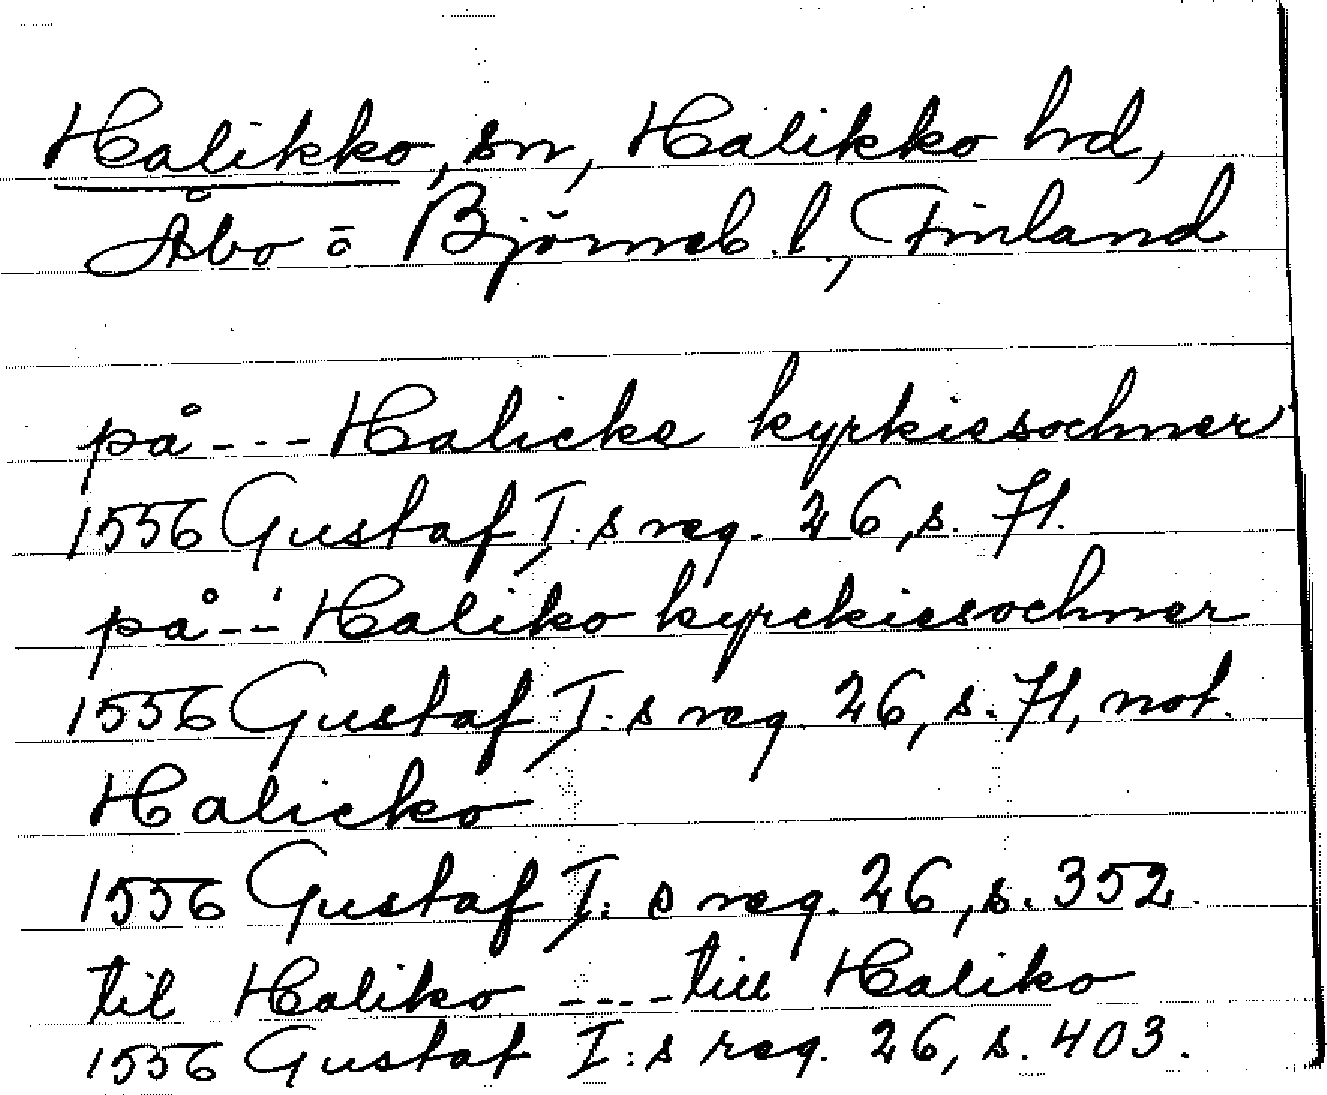 Halikko, sn, Halikko hd,
Åbo o Björneb. l, Finland
på --- Halicke kyrkiesochner
1556 Gustaf I:s reg. 26, s. 71.
på --- Haliko kyrckiesochner
1556 Gustaf I:s reg. 26, s. 71, not.
Halicko
1556 Gustaf I:s reg. 26, s. 352.
til Haliko ---- till Haliko
1556 Gustaf I:s reg. 26, s. 403.